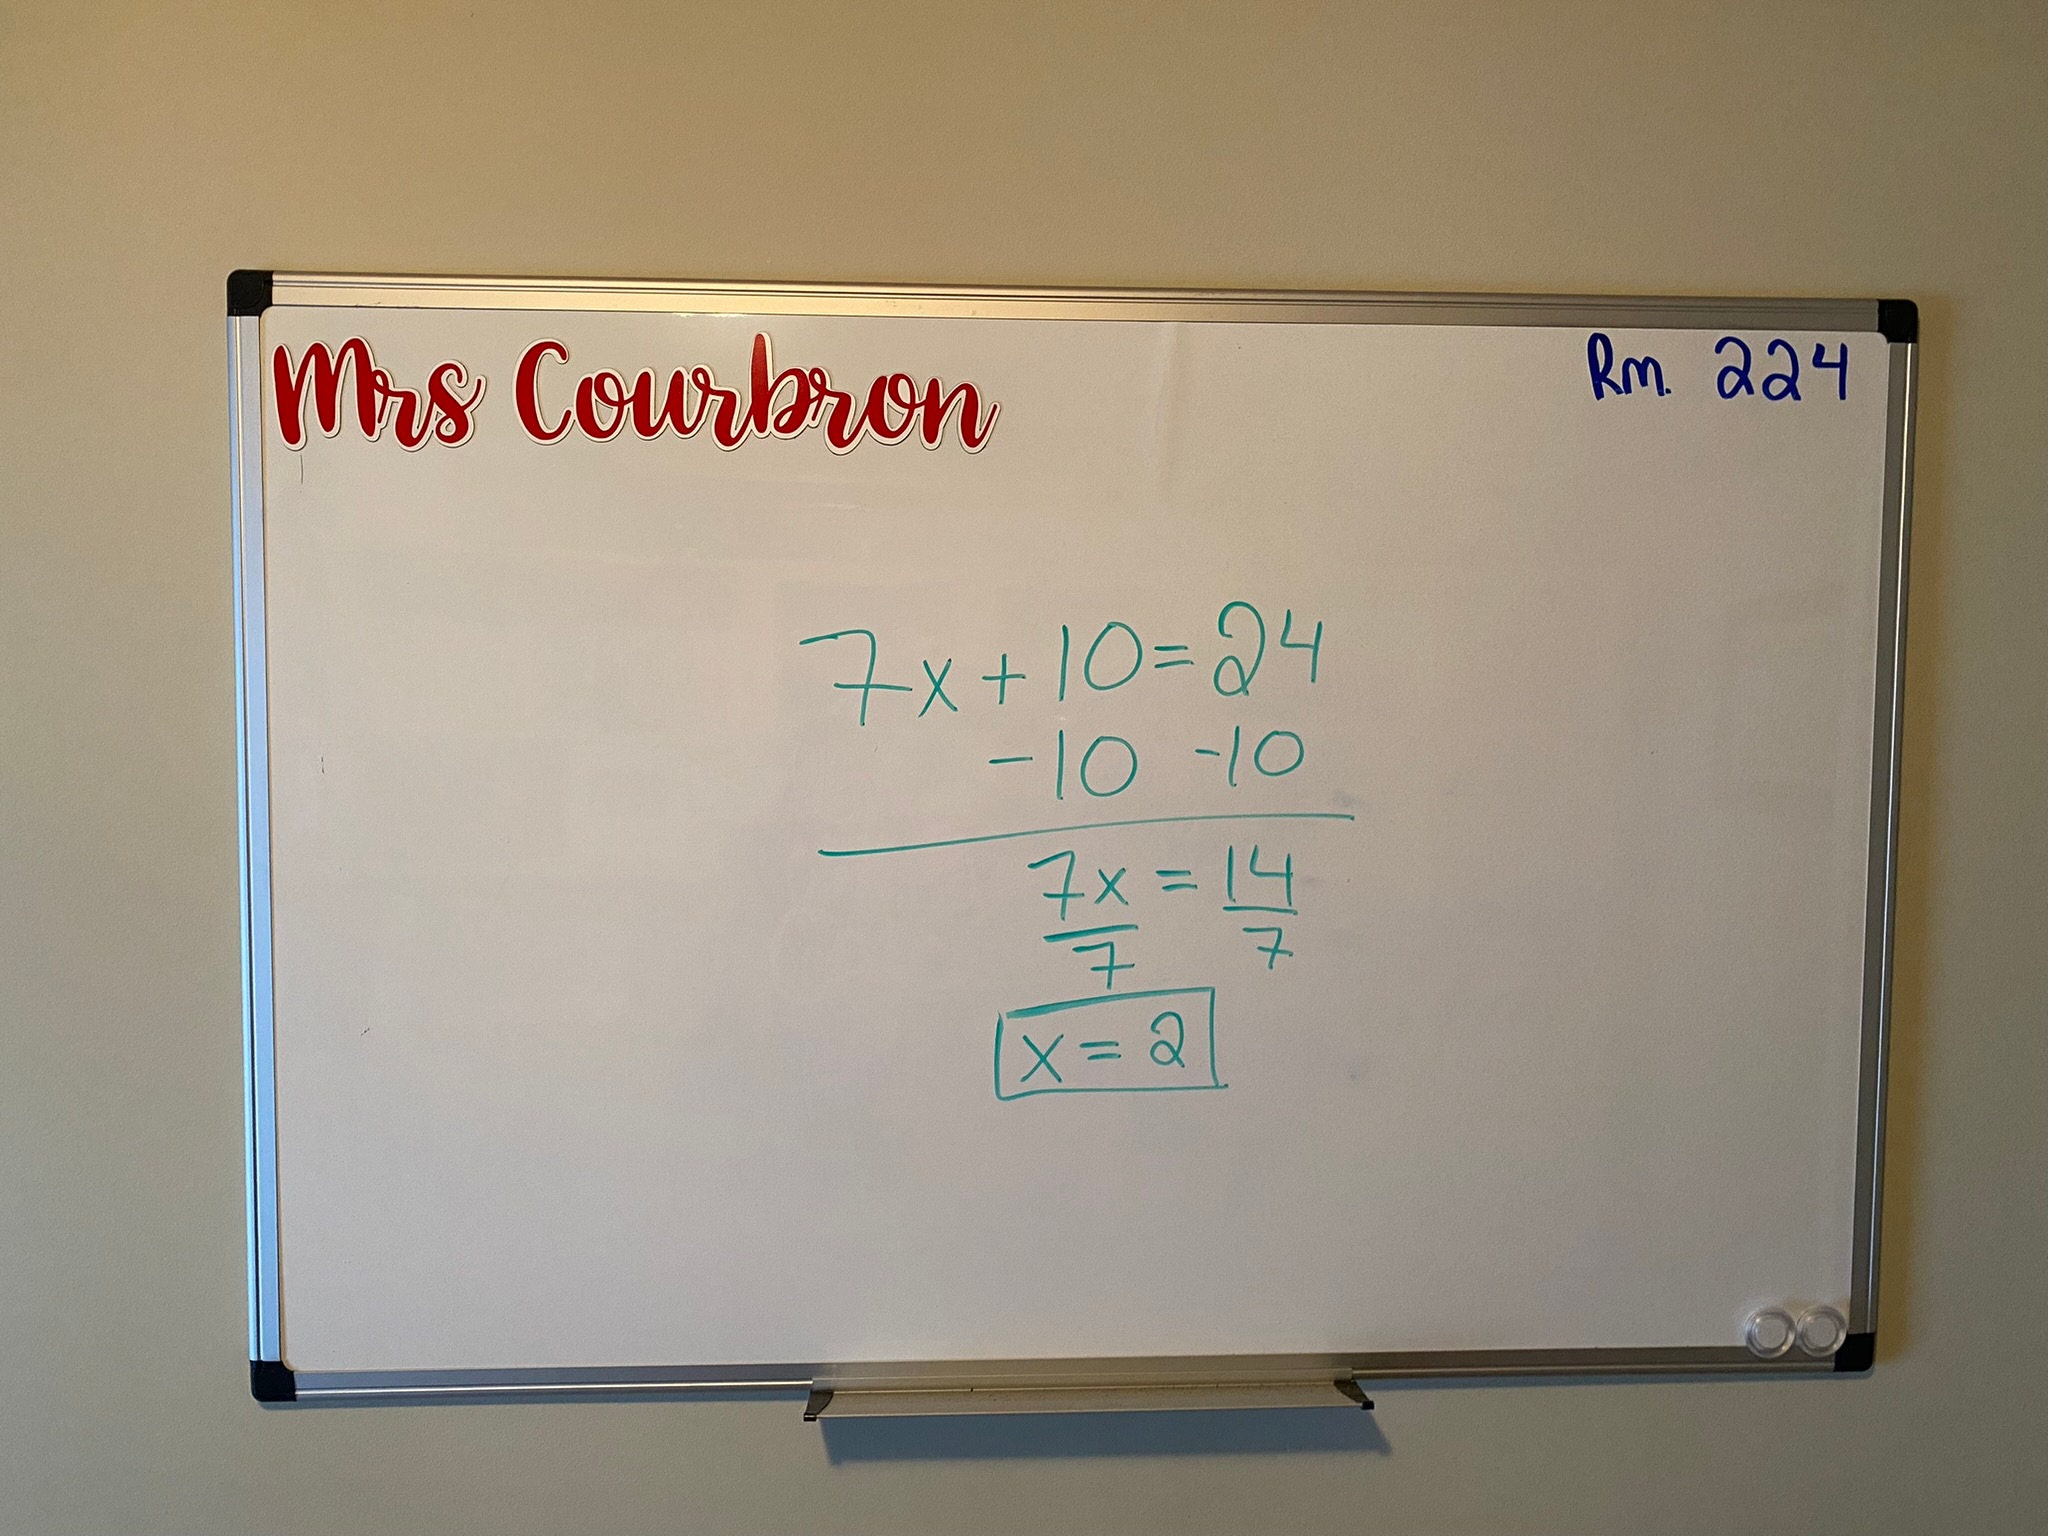 Mrs Courbron
Rm. 224
7x + 10 = 24
-10 -10
7x = 14
7 7
x = 2